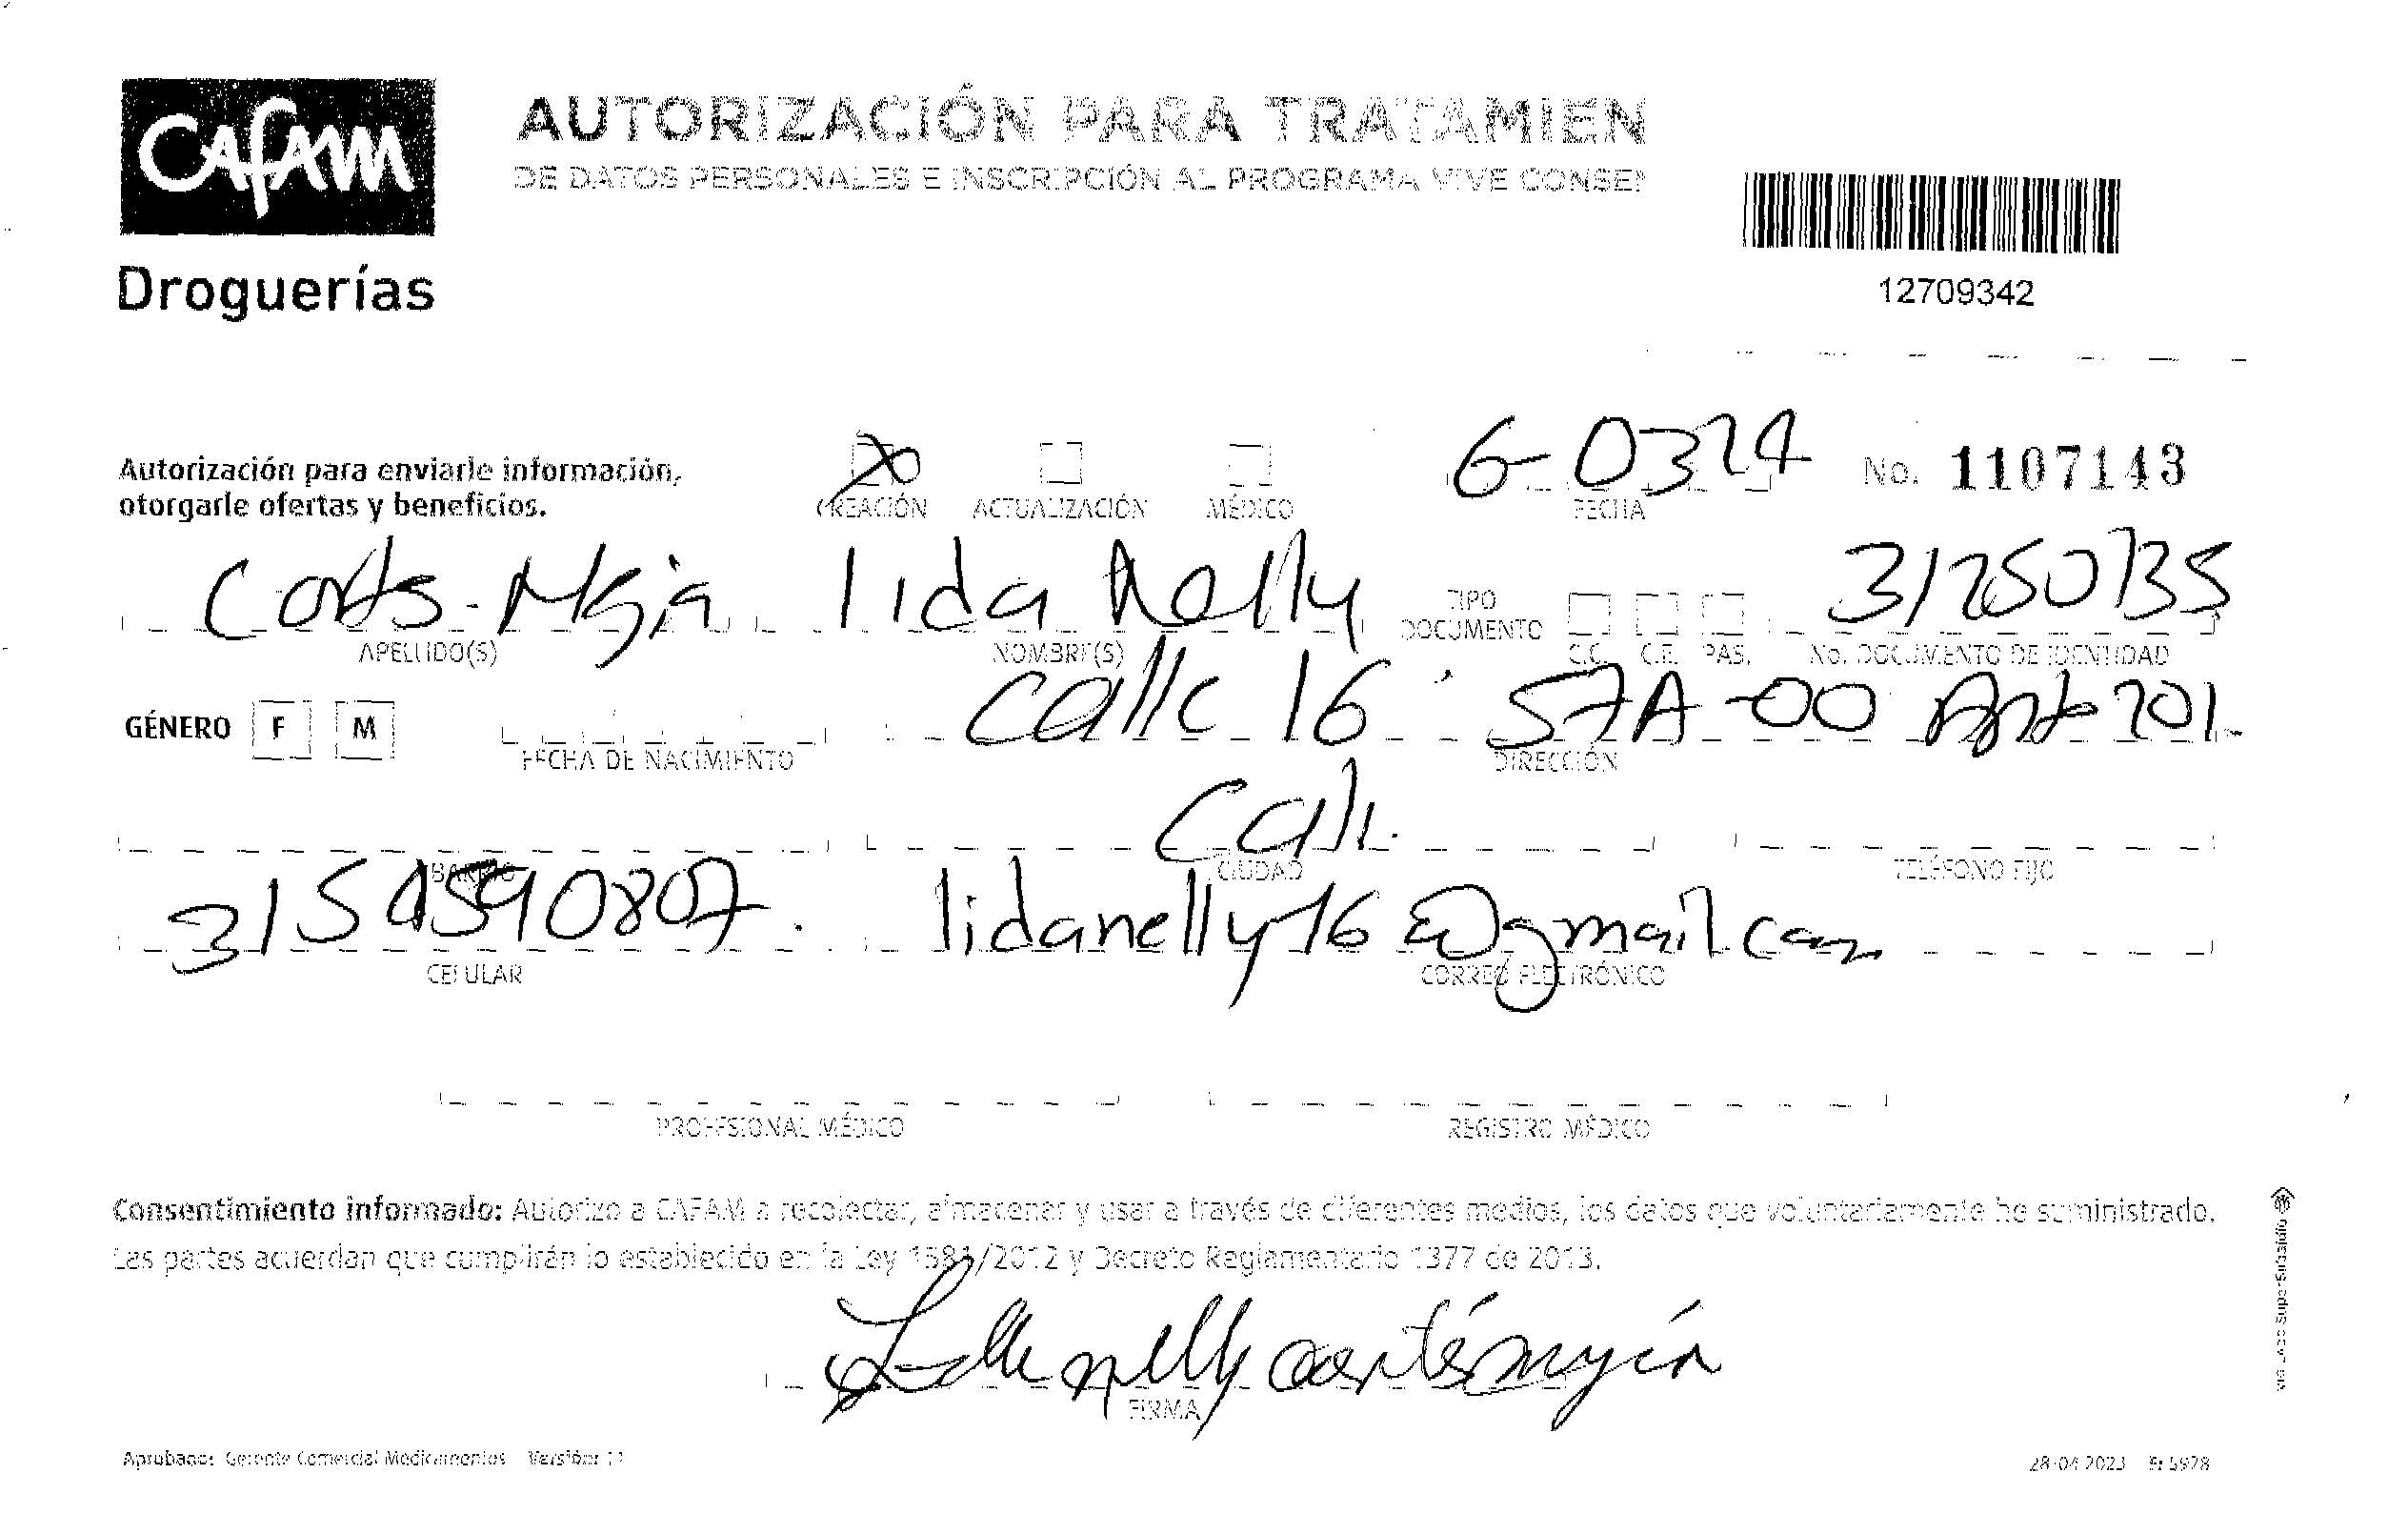 CAFAM
Droguerías
AUTORIZACIÓN PARA TRATAMIEN
DE DATOS PERSONALES E INSCRIPCIÓN AL PROGRAMA VIVE CONSE
12709342
Autorización para enviarle información,
otorgarle ofertas y beneficios.
CREACIÓN ACTUALIZACIÓN MÉDICO
6-0324
FECHA
No. 1107143
Corts Mejia lida Nelly 31250735
APELLIDO(S) NOMBRE(S) TIPO DOCUMENTO C.C. C.E. PAS. No. DOCUMENTO DE IDENTIDAD
GÉNERO F M
FECHA DE NACIMIENTO
calle 16 57A-00 Apto 201.
DIRECCIÓN
Cali.
BARRIO CIUDAD TELÉFONO FIJO
3154590807. lidanelly16@gmail.com
CELULAR CORREO ELECTRÓNICO
PROFESIONAL MÉDICO REGISTRO MÉDICO
Consentimiento informado: Autorizo a CAFAM a recolectar, almacenar y usar a través de diferentes medios, los datos que voluntariamente he suministrado.
Las partes acuerdan que cumplirán lo establecido en la Ley 1581/2012 y Decreto Reglamentario 1377 de 2013.
nelly cortés mejía
FIRMA
Aprobado: Gerente Comercial Medicamentos Versión: 11
28-04-2023 F: 5928
SuperSubsidio